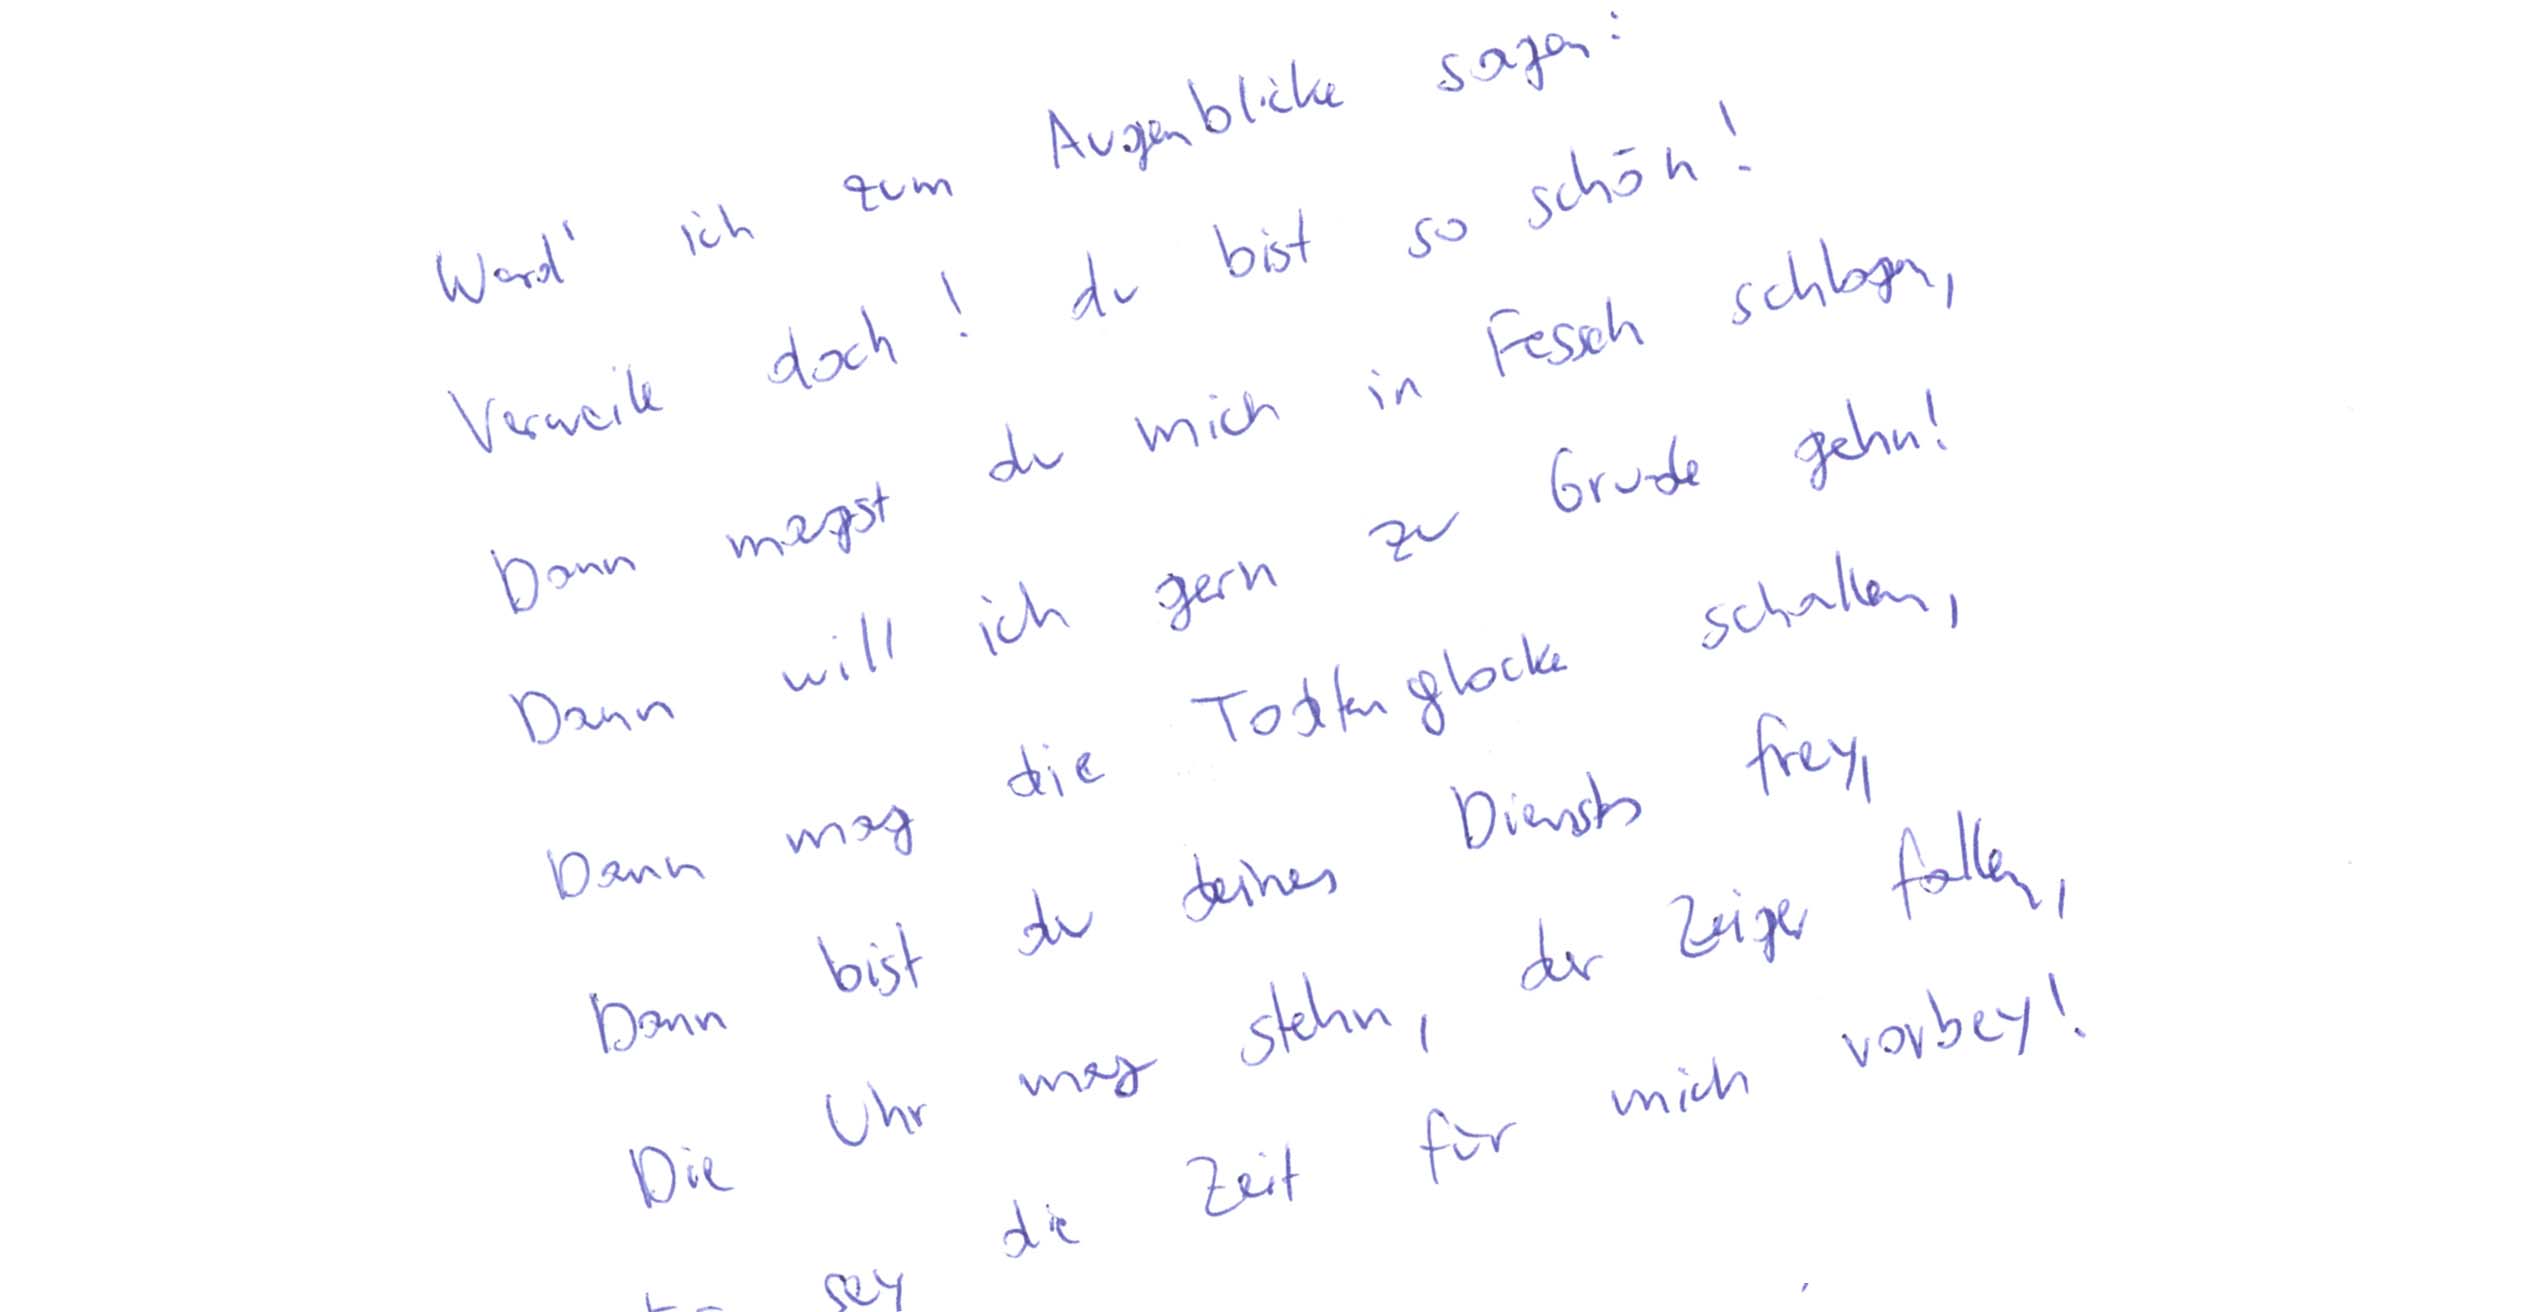 Werd' ich zum Augenblicke sagen:
Verweile doch! du bist so schön!
Dann magst du mich in Fesseln schlagen,
Dann will ich gern zu Grunde gehn!
Dann mag die Todtenglocke schallen,
Dann bist du deines Diensts frey,
Die Uhr mag stehn, der Zeiger fallen,
sey die Zeit für mich vorbey!